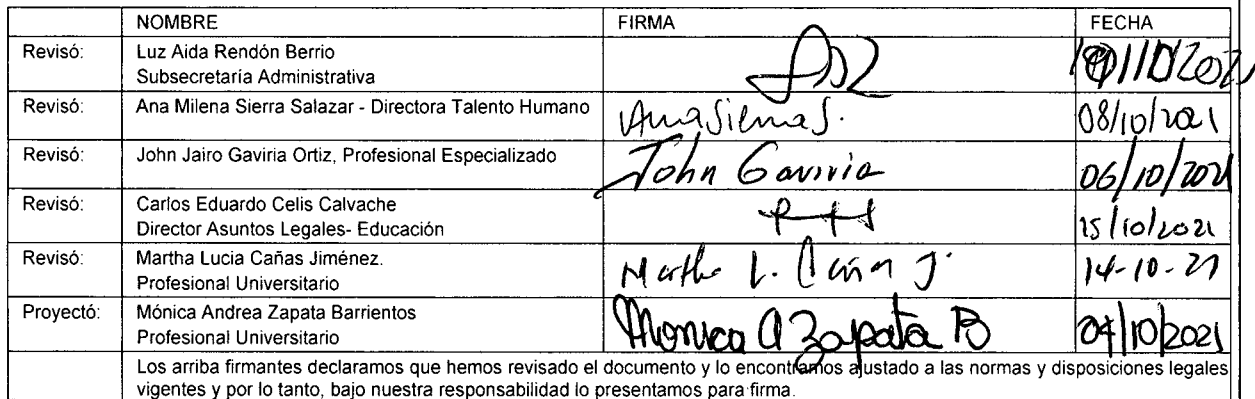 NOMBRE FIRMA FECHA
Revisó: Luz Aida Rendón Berrio
Subsecretaría Administrativa
Revisó: Ana Milena Sierra Salazar - Directora Talento Humano AnaSierraS. 08/10/2021
Revisó: John Jairo Gaviria Ortiz, Profesional Especializado John Gaviria 06/10/2021
Revisó: Carlos Eduardo Celis Calvache 15/10/2021
Director Asuntos Legales- Educación
Revisó: Martha Lucia Cañas Jiménez. Martha L. Cañas J. 14-10-21
Profesional Universitario
Proyectó: Mónica Andrea Zapata Barrientos Monica A Zapata B 04/10/2021
Profesional Universitario
Los arriba firmantes declaramos que hemos revisado el documento y lo encontramos ajustado a las normas y disposiciones legales
vigentes y por lo tanto, bajo nuestra responsabilidad lo presentamos para firma.